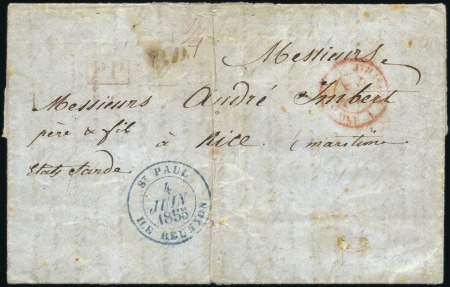 P.P.
Messieurs
Messieurs André Imbert
père & fil
à Nice (maritime
Etats Sarde
ST PAUL
4
JULY
1855
ILE REUNION